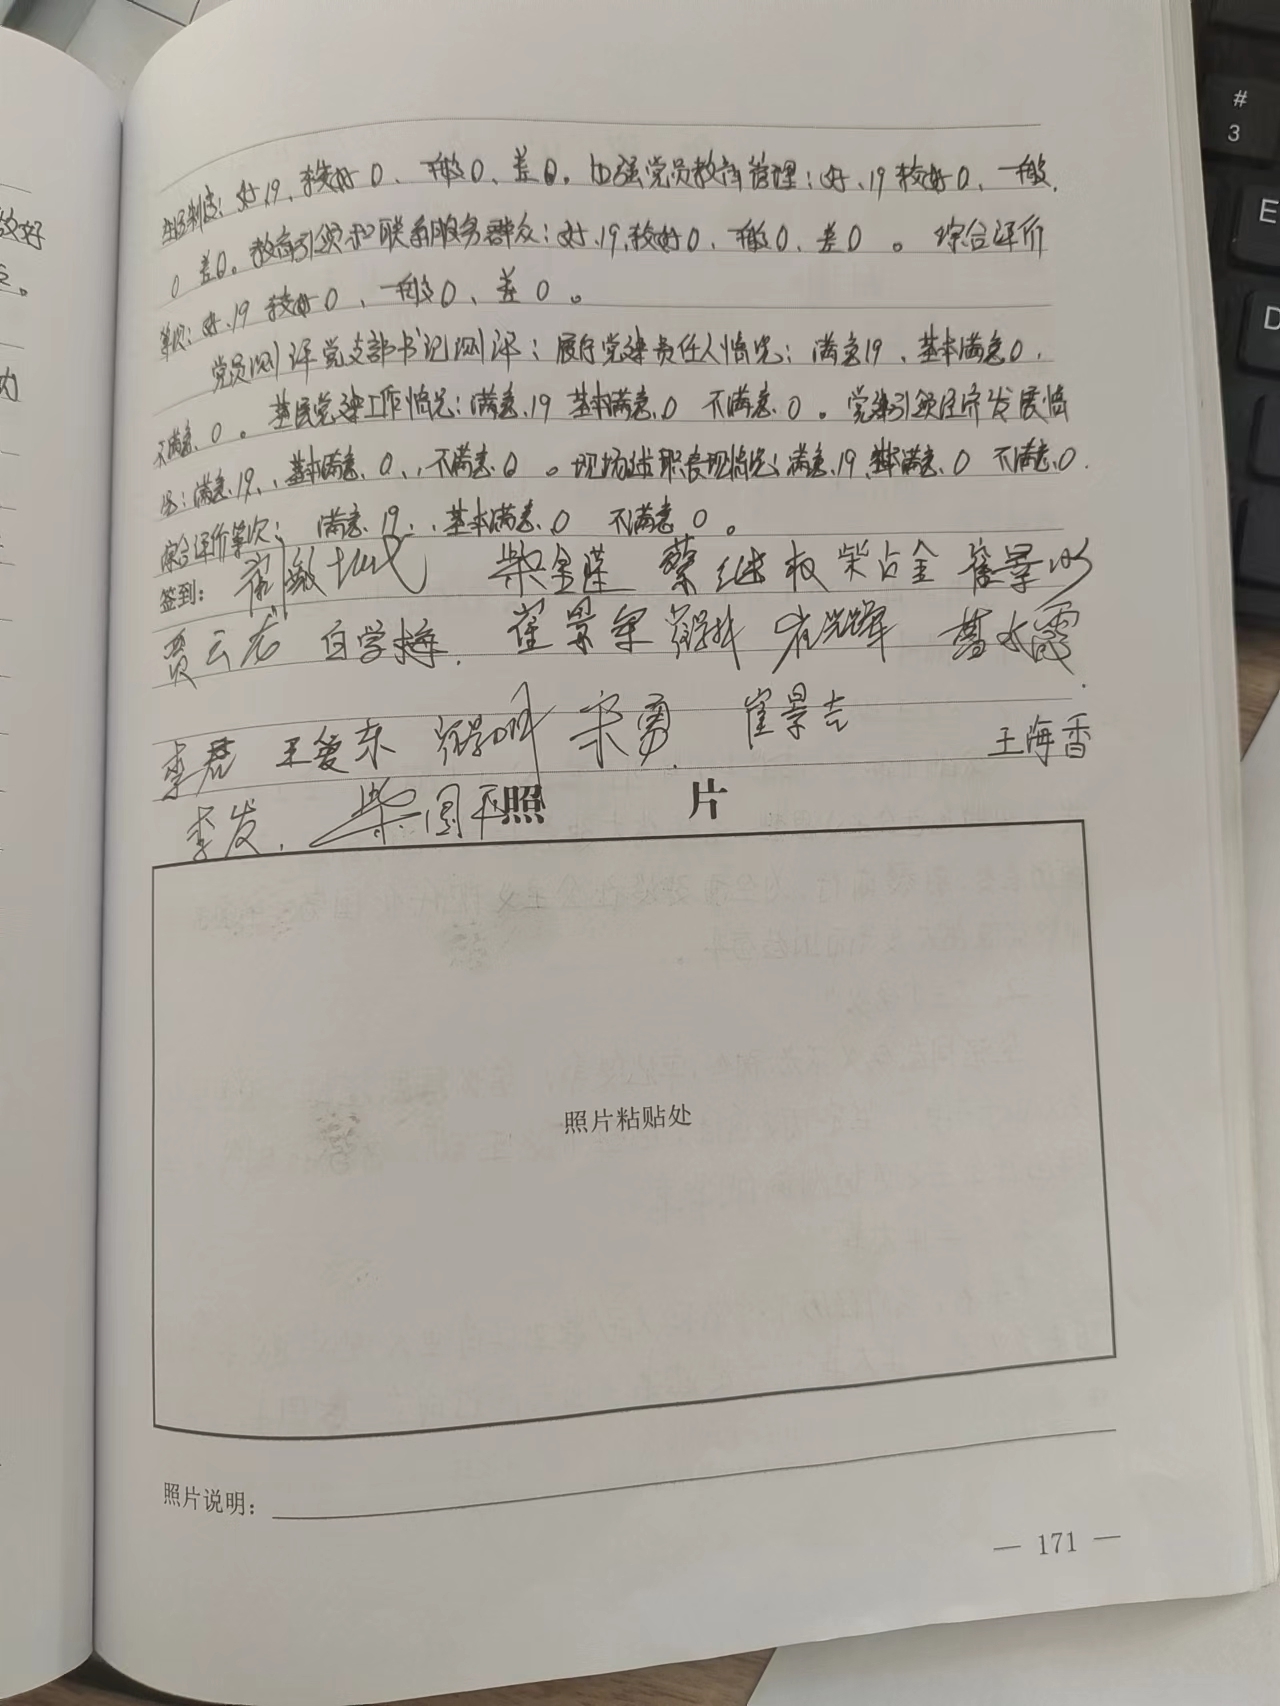 生活制度：好、19、较好0、一般0、差0。加强党员教育管理：好、19较好0、一般、
0 差0。教育引领和联系服务群众：好、19、较好0、一般0、差0。综合评价
等次：好、19 较好0、一般0、差0。
党员测评党支部书记测评：履行党建责任人情况：满意19、基本满意0、
不满意、0。基层党建工作情况：满意、19 基本满意、0 不满意、0。党建引领经济发展情
况：满意、19、基本满意、0、不满意、0。现场述职表现情况：满意、19、基本满意、0 不满意、0.
综合评价等次： 满意、19、基本满意、0 不满意、0。
签到： 柴金莲 蔡继权 柴占金 崔景
贾云龙 白学梅 崔景军
李君 王爱东 宋勇 崔景吉 王海香
李发 柴国平
照 片
照片粘贴处
照片说明：
— 171 —
#
3
E
D
较好